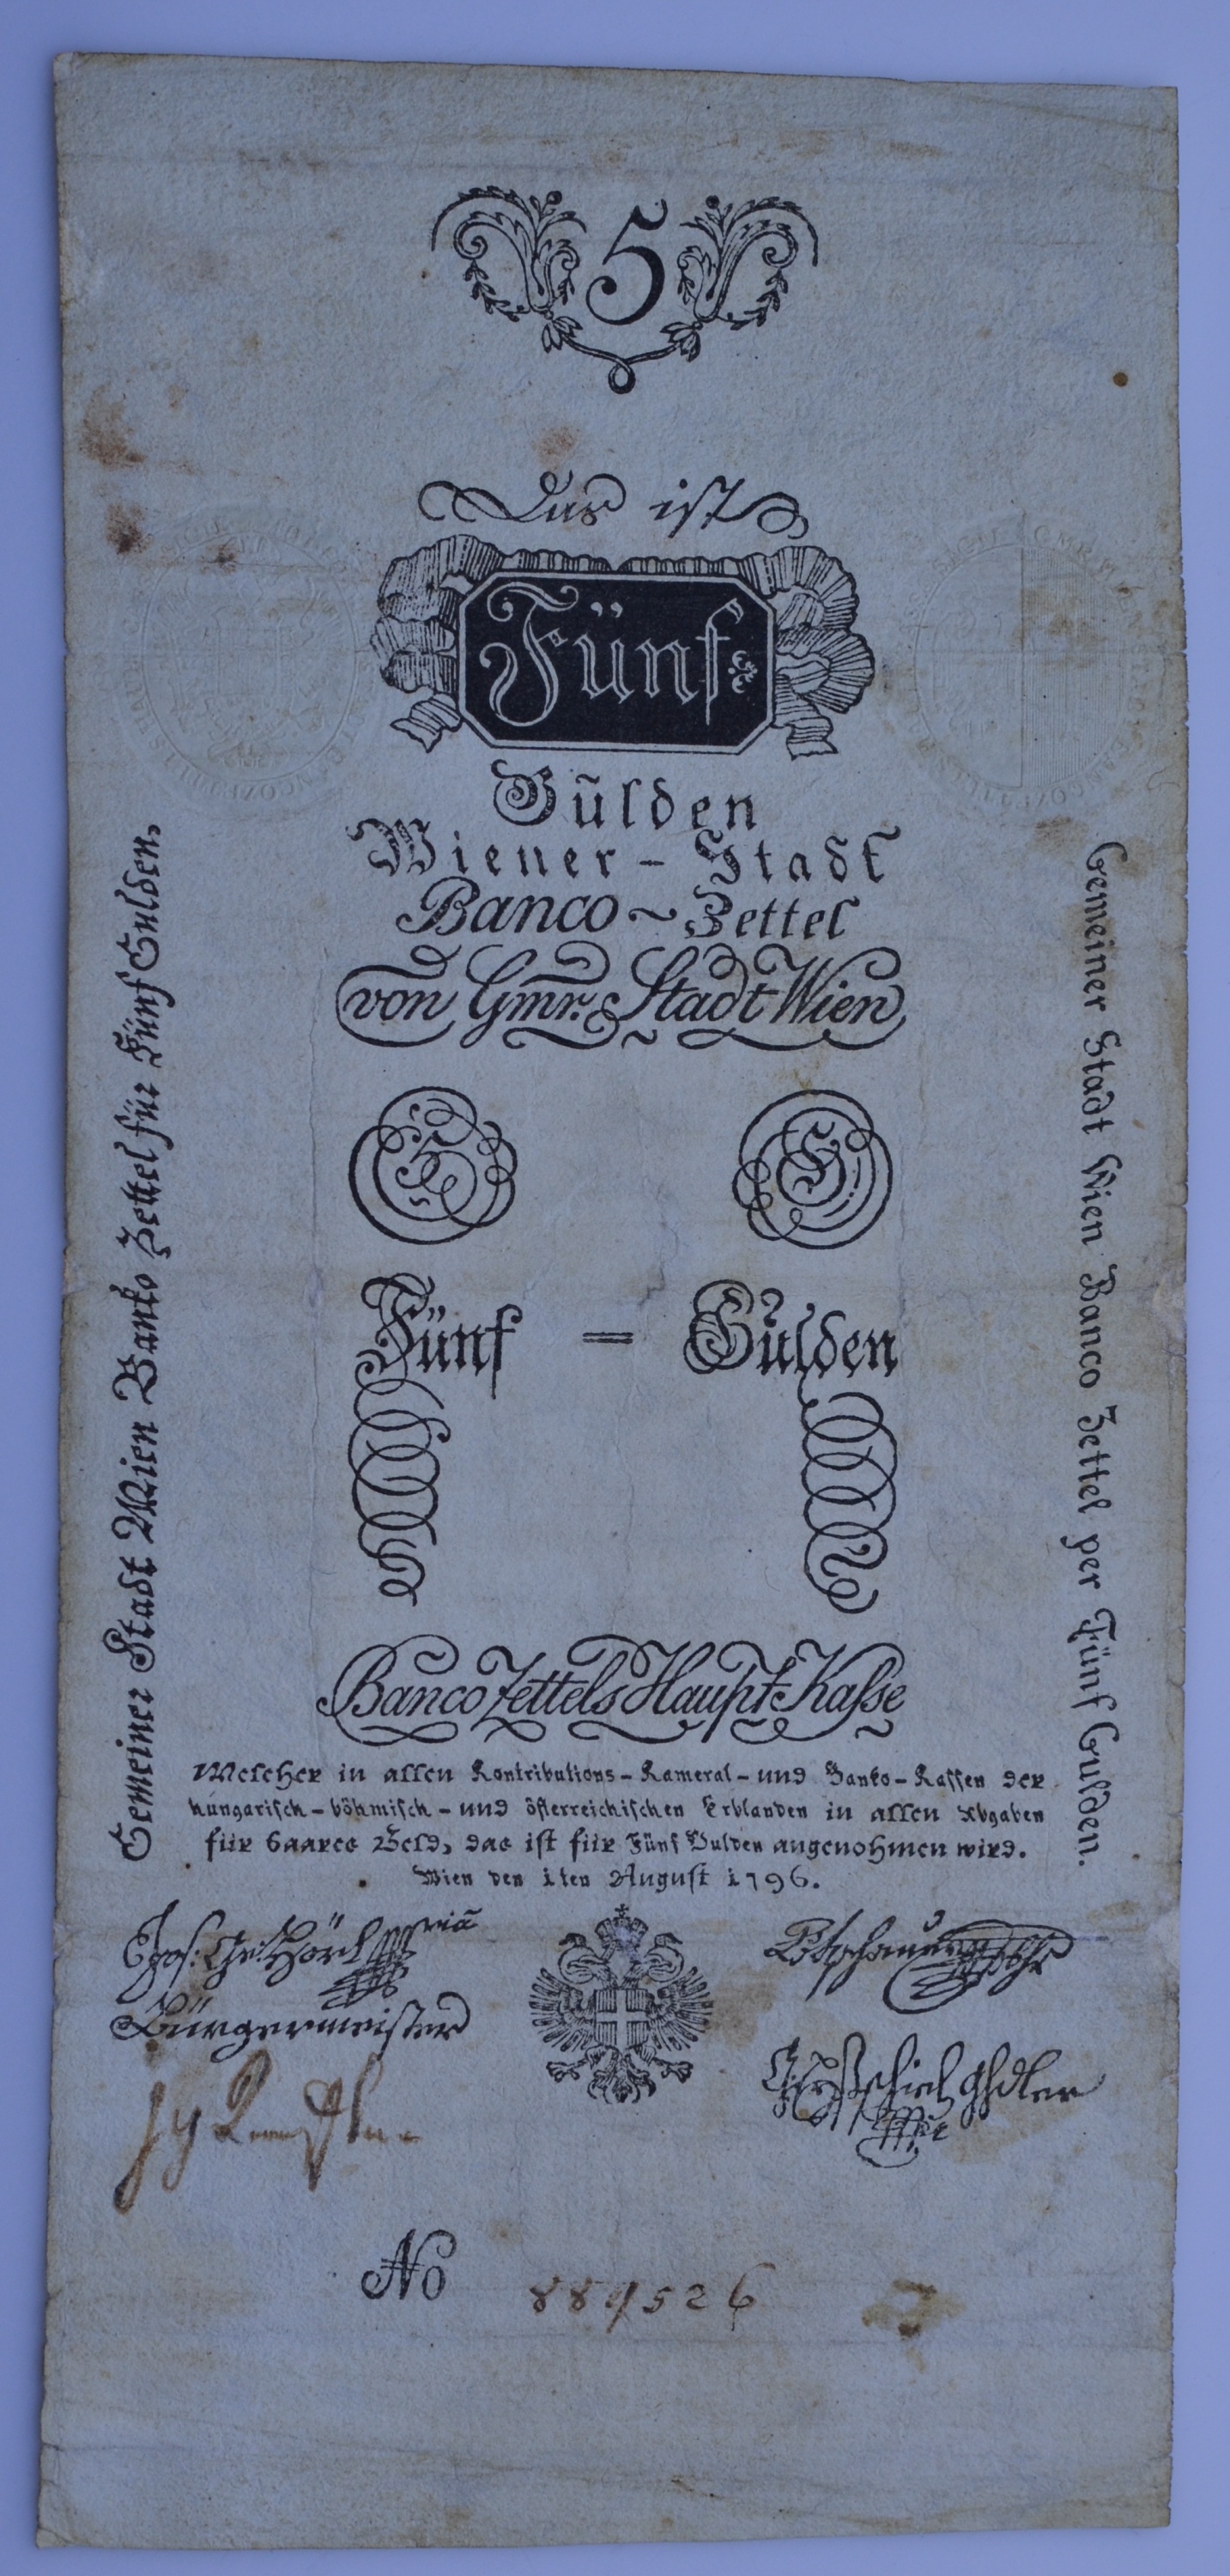 5
Das ist
Fünf
Gülden
Wiener - Stadt
Banco ~ Zettel
von Gmr. Stadt Wien
5
5
Fünf = Gülden
Banco Zettels Haupt Kasse
Welcher in allen Kontributions - Kameral - und Banko - Kassen der
hungarisch - böhmisch - und österreichischen Erblanden in allen Abgaben
für baares Geld, das ist für Fünf Gulden angenohmen wird.
Wien den 1ten August 1796.
Gemeiner Stadt Wien Banko Zettel für Fünf Gulden.
Gemeiner Stadt Wien Banco Zettel per Fünf Gulden.
Jos. Hörl
Bürgermeister
No 889526